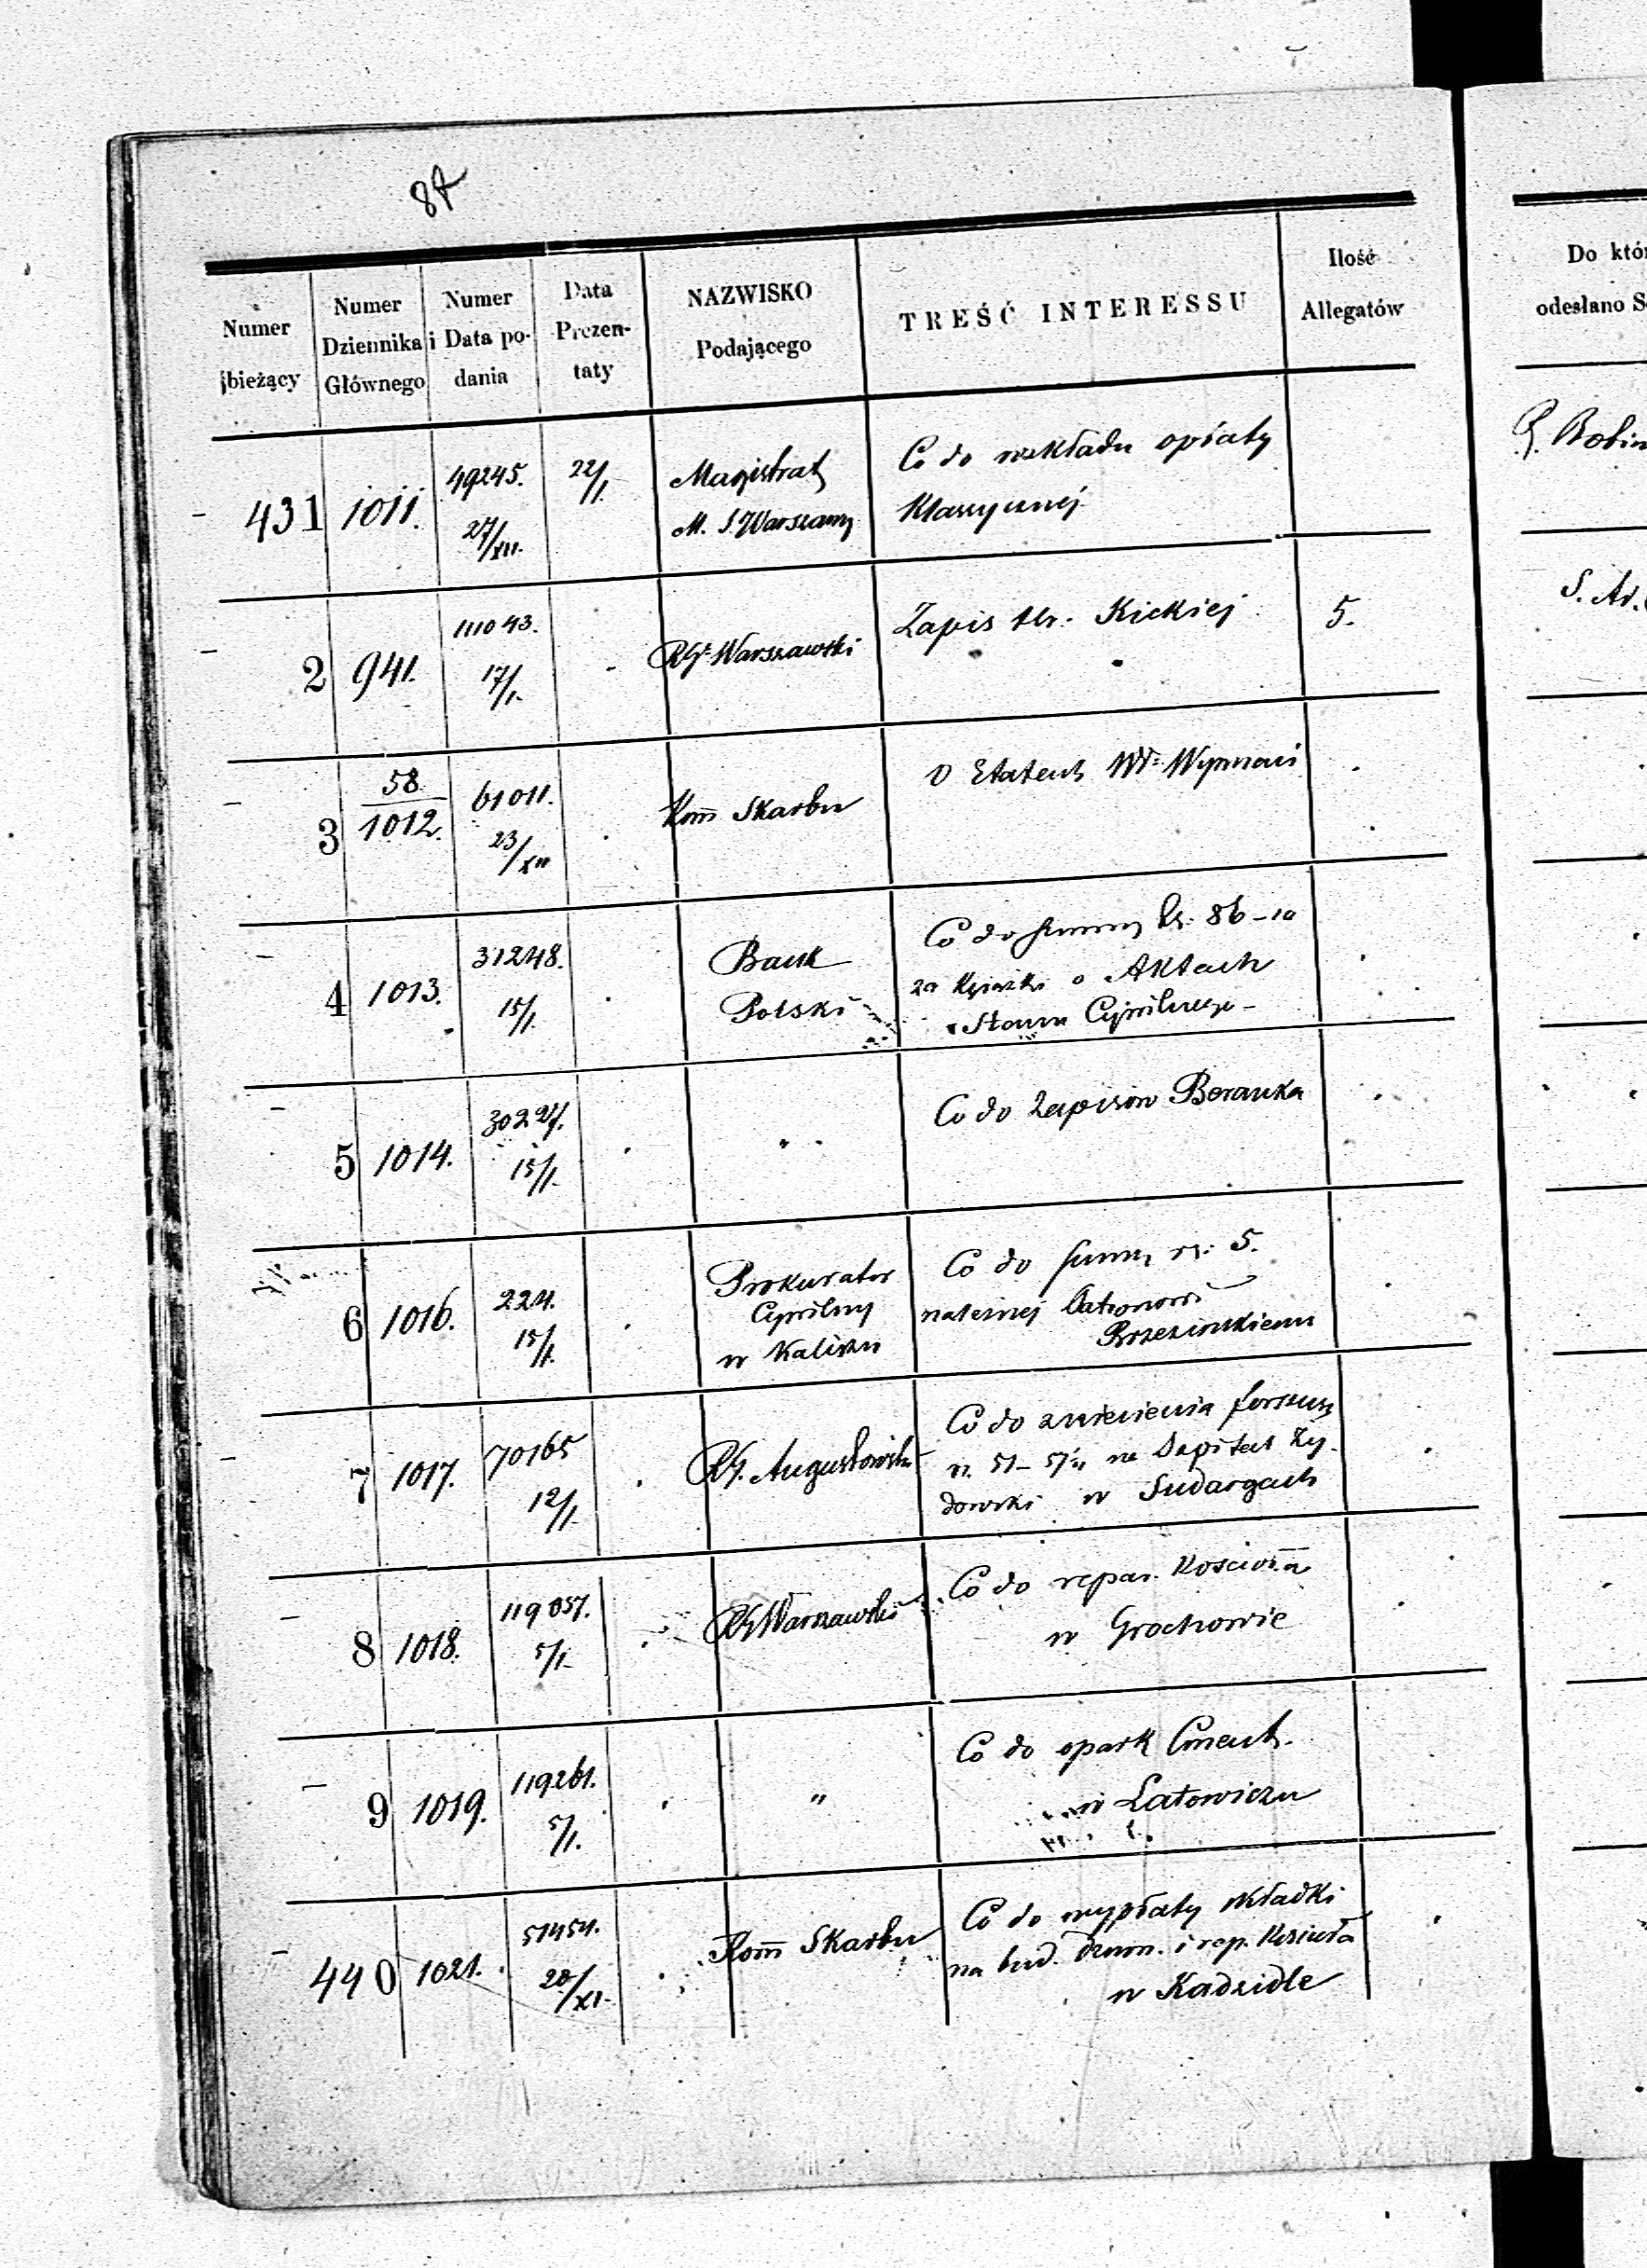 87
Numer bieżący
Numer Dziennika Głównego
Numer i Data podania
Data Prezentaty
NAZWISKO Podającego
TREŚĆ INTERESSU
Ilość Allegatów
Do któr
odesłano S
431 1011. 49245. 27/XII. 22/I. Magistrat
M. S. Warszawy
Co do rozkładu opłaty
Klasycznej
2 941. 111043. 17/I. RG Warszawski
Zapis Hr. Kickiej 5.
S. Ad.
3 58./1012. 61011. 23/XII Kom̄ Skarbu
O Etatach
4 1013. 31248. 15/I. Bank
Polski
Co do summy 86-10
za Książki o Aktach
Stanu Cywilnego
5 1014. 30227. 15/I.
Co do Zapisów Beranka
6 1016. 224. 15/I. Prokurator
Cywilny
w Kaliszu
Co do summy rs. 5.
należnej Patronowi
Brzezinskiemu
7 1017. 70165 12/I. RG. Augustowski
Co do zwrócenia
na Szpital Ży-
dowski w Sudargach
8 1018. 119057. 5/I. RG Warszawski
Co do repar. Kościoła
w Grochowie
9 1019. 119261. 5/I. "
Co do opark Cment.
w Latowiczu
440 1021. 51454. 20/XI. Kom̄ Skarbu
Co do wypłaty składki
na bud. dzwon. i rep. Kościoła
w Kadzidle